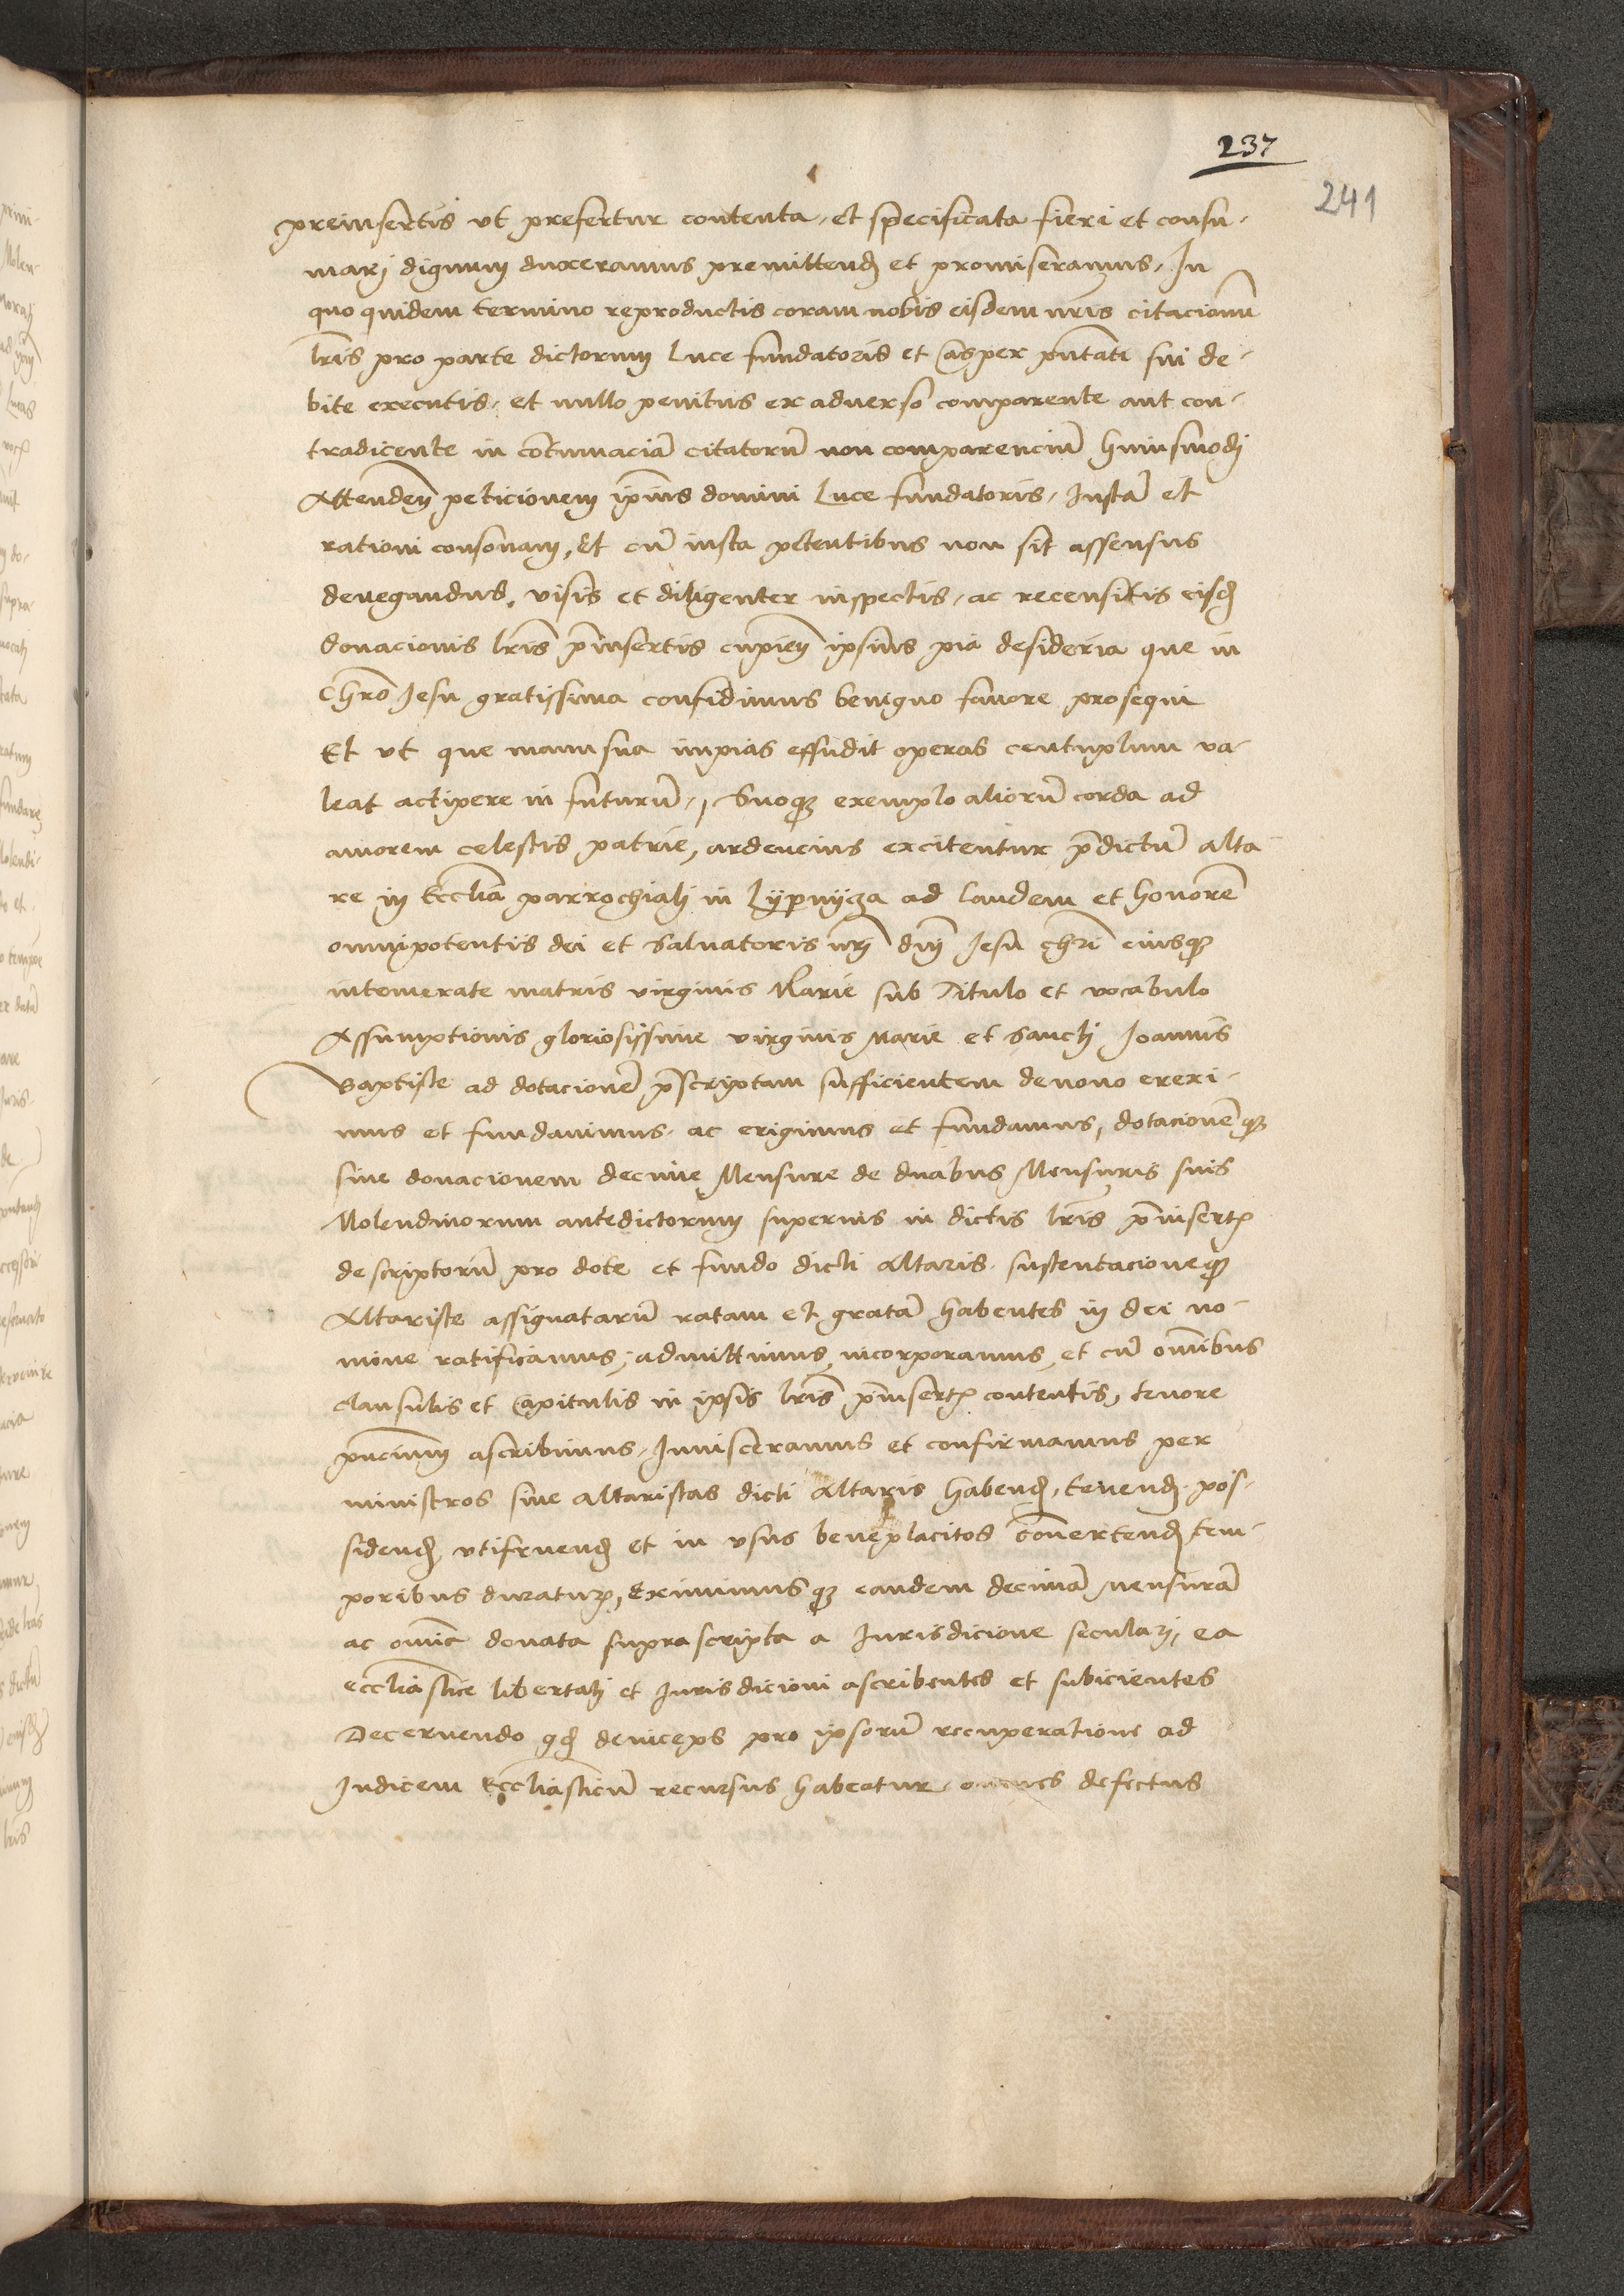 237
241
preinsertis ut prefertur contenta, et specificata fieri et consu-
marj dignum duxeramus premittend et promiseramus, In
quo quidem termino reproductis coram nobis eisdem nr̃is citacionũ
lr̃is pro parte dictorum Luce fundatoris et Casper pñtati sui de-
bite executis, et nullo penitus ex adverso comparente aut con-
tradicente in cõtumaciã citatorũ non comparenciũ huiusmodj
Attendeñ peticionem ip̃ius domini Luce fundatoris, Iustã et
rationi consonam, Et cũ iusta petentibus non sit assensus
denegandus, visis et diligenter inspectis, ac recensitis eisd
donacionis lr̃is p̃insertis cupieñ ipsius pia desideria que in
Chr̃o Iesu gratissima confidimus benigno favore prosequi
Et ut que manu sua in pias effudit operas centuplum va-
leat actipere in futurũ, Suoq₃ exemplo aliorũ corda ad
amorem celestis patrie, ardencius excitentur p̃dictũ alta
re in Eccl̃ia parrochialj in Lypnyza ad laudem et honorẽ
omnipotentis dei et Salvatoris nr̃j dñj Iesu Chr̃i eiusq₃
intemerate matris virginis Marie sub Titulo et vocabulo
Assumptionis gloriosissime virginis Marie et Sanctj Ioannis
Baptiste ad dotacionẽ p̃scriptam sufficientem de novo erexi-
mus et fundavimus, ac erigimus et fundamus, dotacionẽq₃
sive donacionem decime Mensure de duabus Mensuris suis
Molendinorum antedictorum superius in dictis lr̃is p̃insert
descriptorũ pro dote et fundo dicti Altaris, sustentacioneq₃
Altariste assignatarũ ratam et gratã habentes in dei no-
mine ratificamus, admittimus, incorporamus, et cũ om̃ibus
clausulis et Capitulis in ipsis lr̃is p̃insert contentis, tenore
p̃ncium ascribimus, Invisceramus et confirmamus per
ministros sive altaristas dicti Altaris habend, tenend, pos-
sidend, utifruend et in usus beneplacitos cõvertend tem-
poribus duratur, Eximimusq₃ eandem decimã Mensurã
ac om̃ia donata suprascripta a Iurisdicione secularj, ea
eccl̃iastice libertatj et Iurisdicioni ascribentes et subicientes
Decernendo qd deinceps pro ipsorũ recuperatione ad
Iudicem Eccl̃iasticũ recursus habeatur, omnes defectus